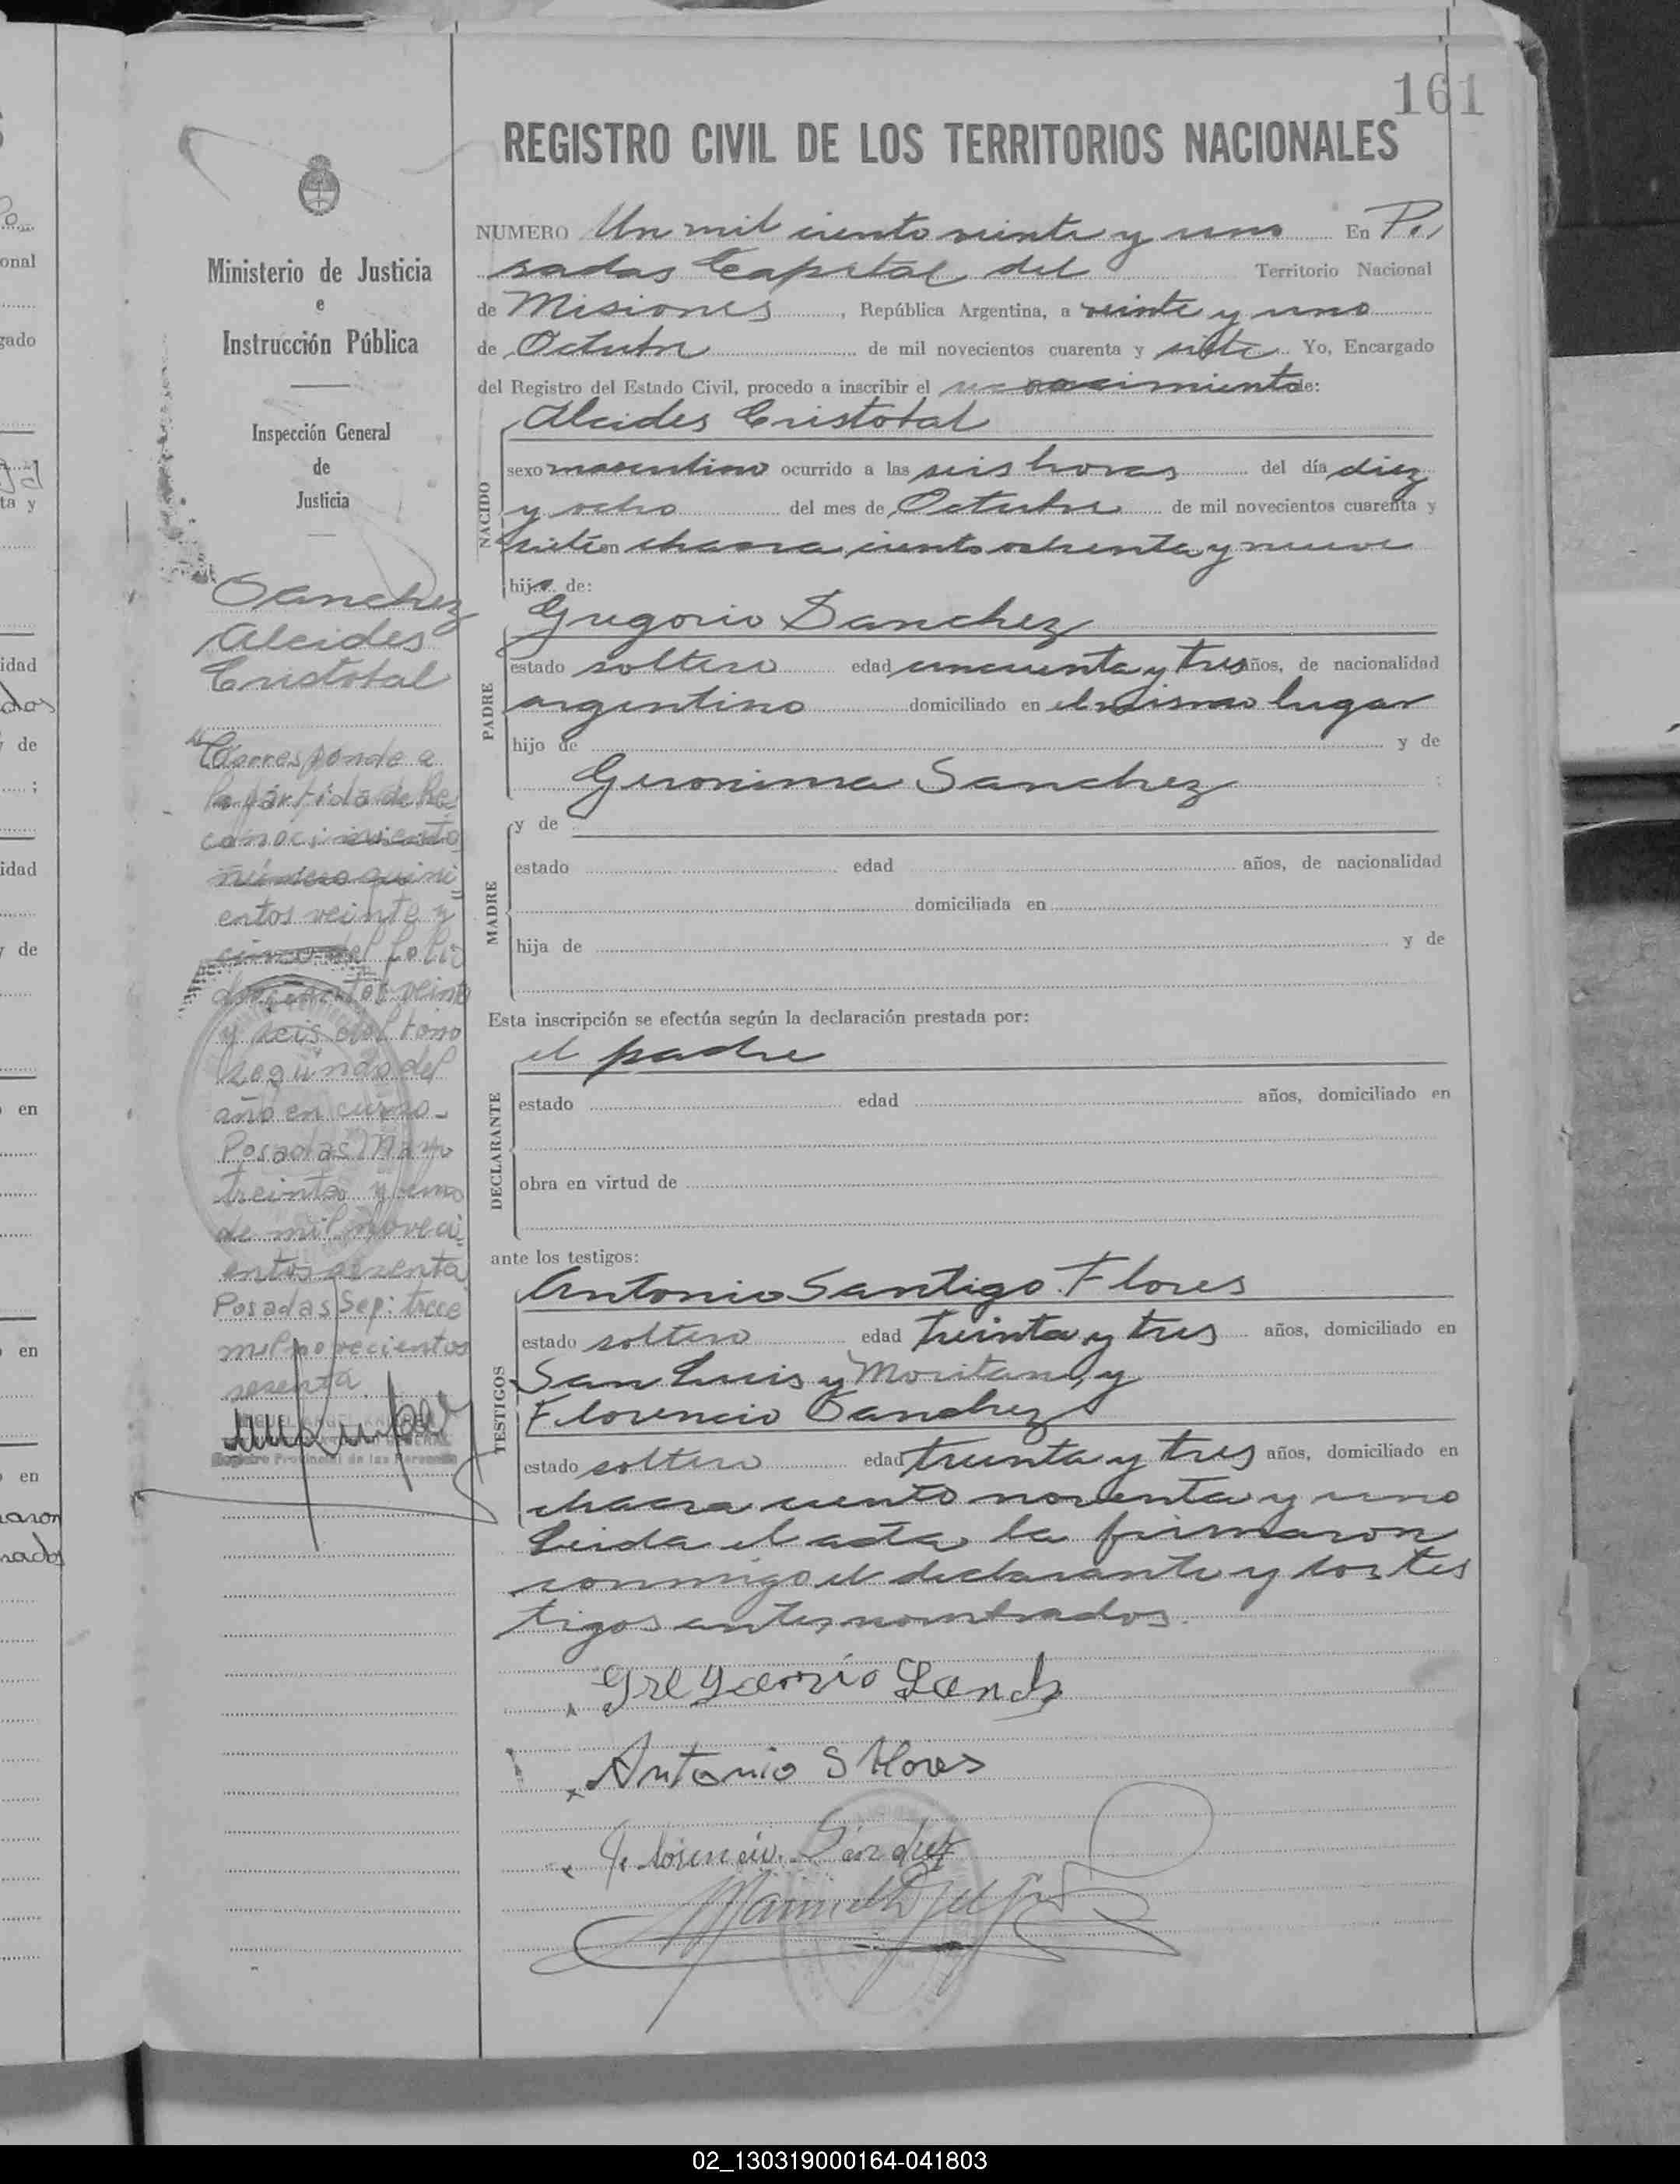 161
REGISTRO CIVIL DE LOS TERRITORIOS NACIONALES
Ministerio de Justicia
e
Instrucción Pública
Inspección General
de
Justicia
Sanchez
Alcides
Cristobal
Corresponde a
la pártida de Re
conocimiento
número quini
entos veinte y
cinco del folio
doscientos veinte
y seis del tomo
segundo del
año en curso.
Posadas Marzo
treinta y uno
de mil noveci
entos sesenta
Posadas Sep: trece
mil novecientos
sesenta
NUMERO Un mil ciento veinte y uno En Po
sadas Capital del Territorio Nacional
de Misiones, República Argentina, a veinte y uno
de Octubre de mil novecientos cuarenta y siete Yo, Encargado
del Registro del Estado Civil, procedo a inscribir el de:
NACIDO
Alcides Cristobal
sexo masculino ocurrido a las seis horas del día diez
y ocho del mes de Octubre de mil novecientos cuarenta y
siete en chacra ciento ochenta y nueve
hijo de:
PADRE
Gregorio Sanchez
estado soltero edad cincuenta y tres años, de nacionalidad
argentino domiciliado en el mismo lugar
hijo de y de
Geronima Sanchez
MADRE
y de
estado edad años, de nacionalidad
domiciliada en
hija de y de
Esta inscripción se efectúa según la declaración prestada por:
DECLARANTE
el padre
estado edad años, domiciliado en
obra en virtud de
ante los testigos:
TESTIGOS
Antonio Santigo Flores
estado soltero edad treinta y tres años, domiciliado en
San Luis y y
Florencio Sanchez
estado soltero edad treinta y tres años, domiciliado en
chacra ciento noventa y uno
Leida el acta la firmaron
conmigo el declarante y los tes
tigos antes nombrados.
Gregorio Sanch
Antonio S Flores
Florencio Sanchez
onal
gado
ta y
idad
dos
y de
idad
y de
en
en
en
aron
rados
02_130319000164-041803